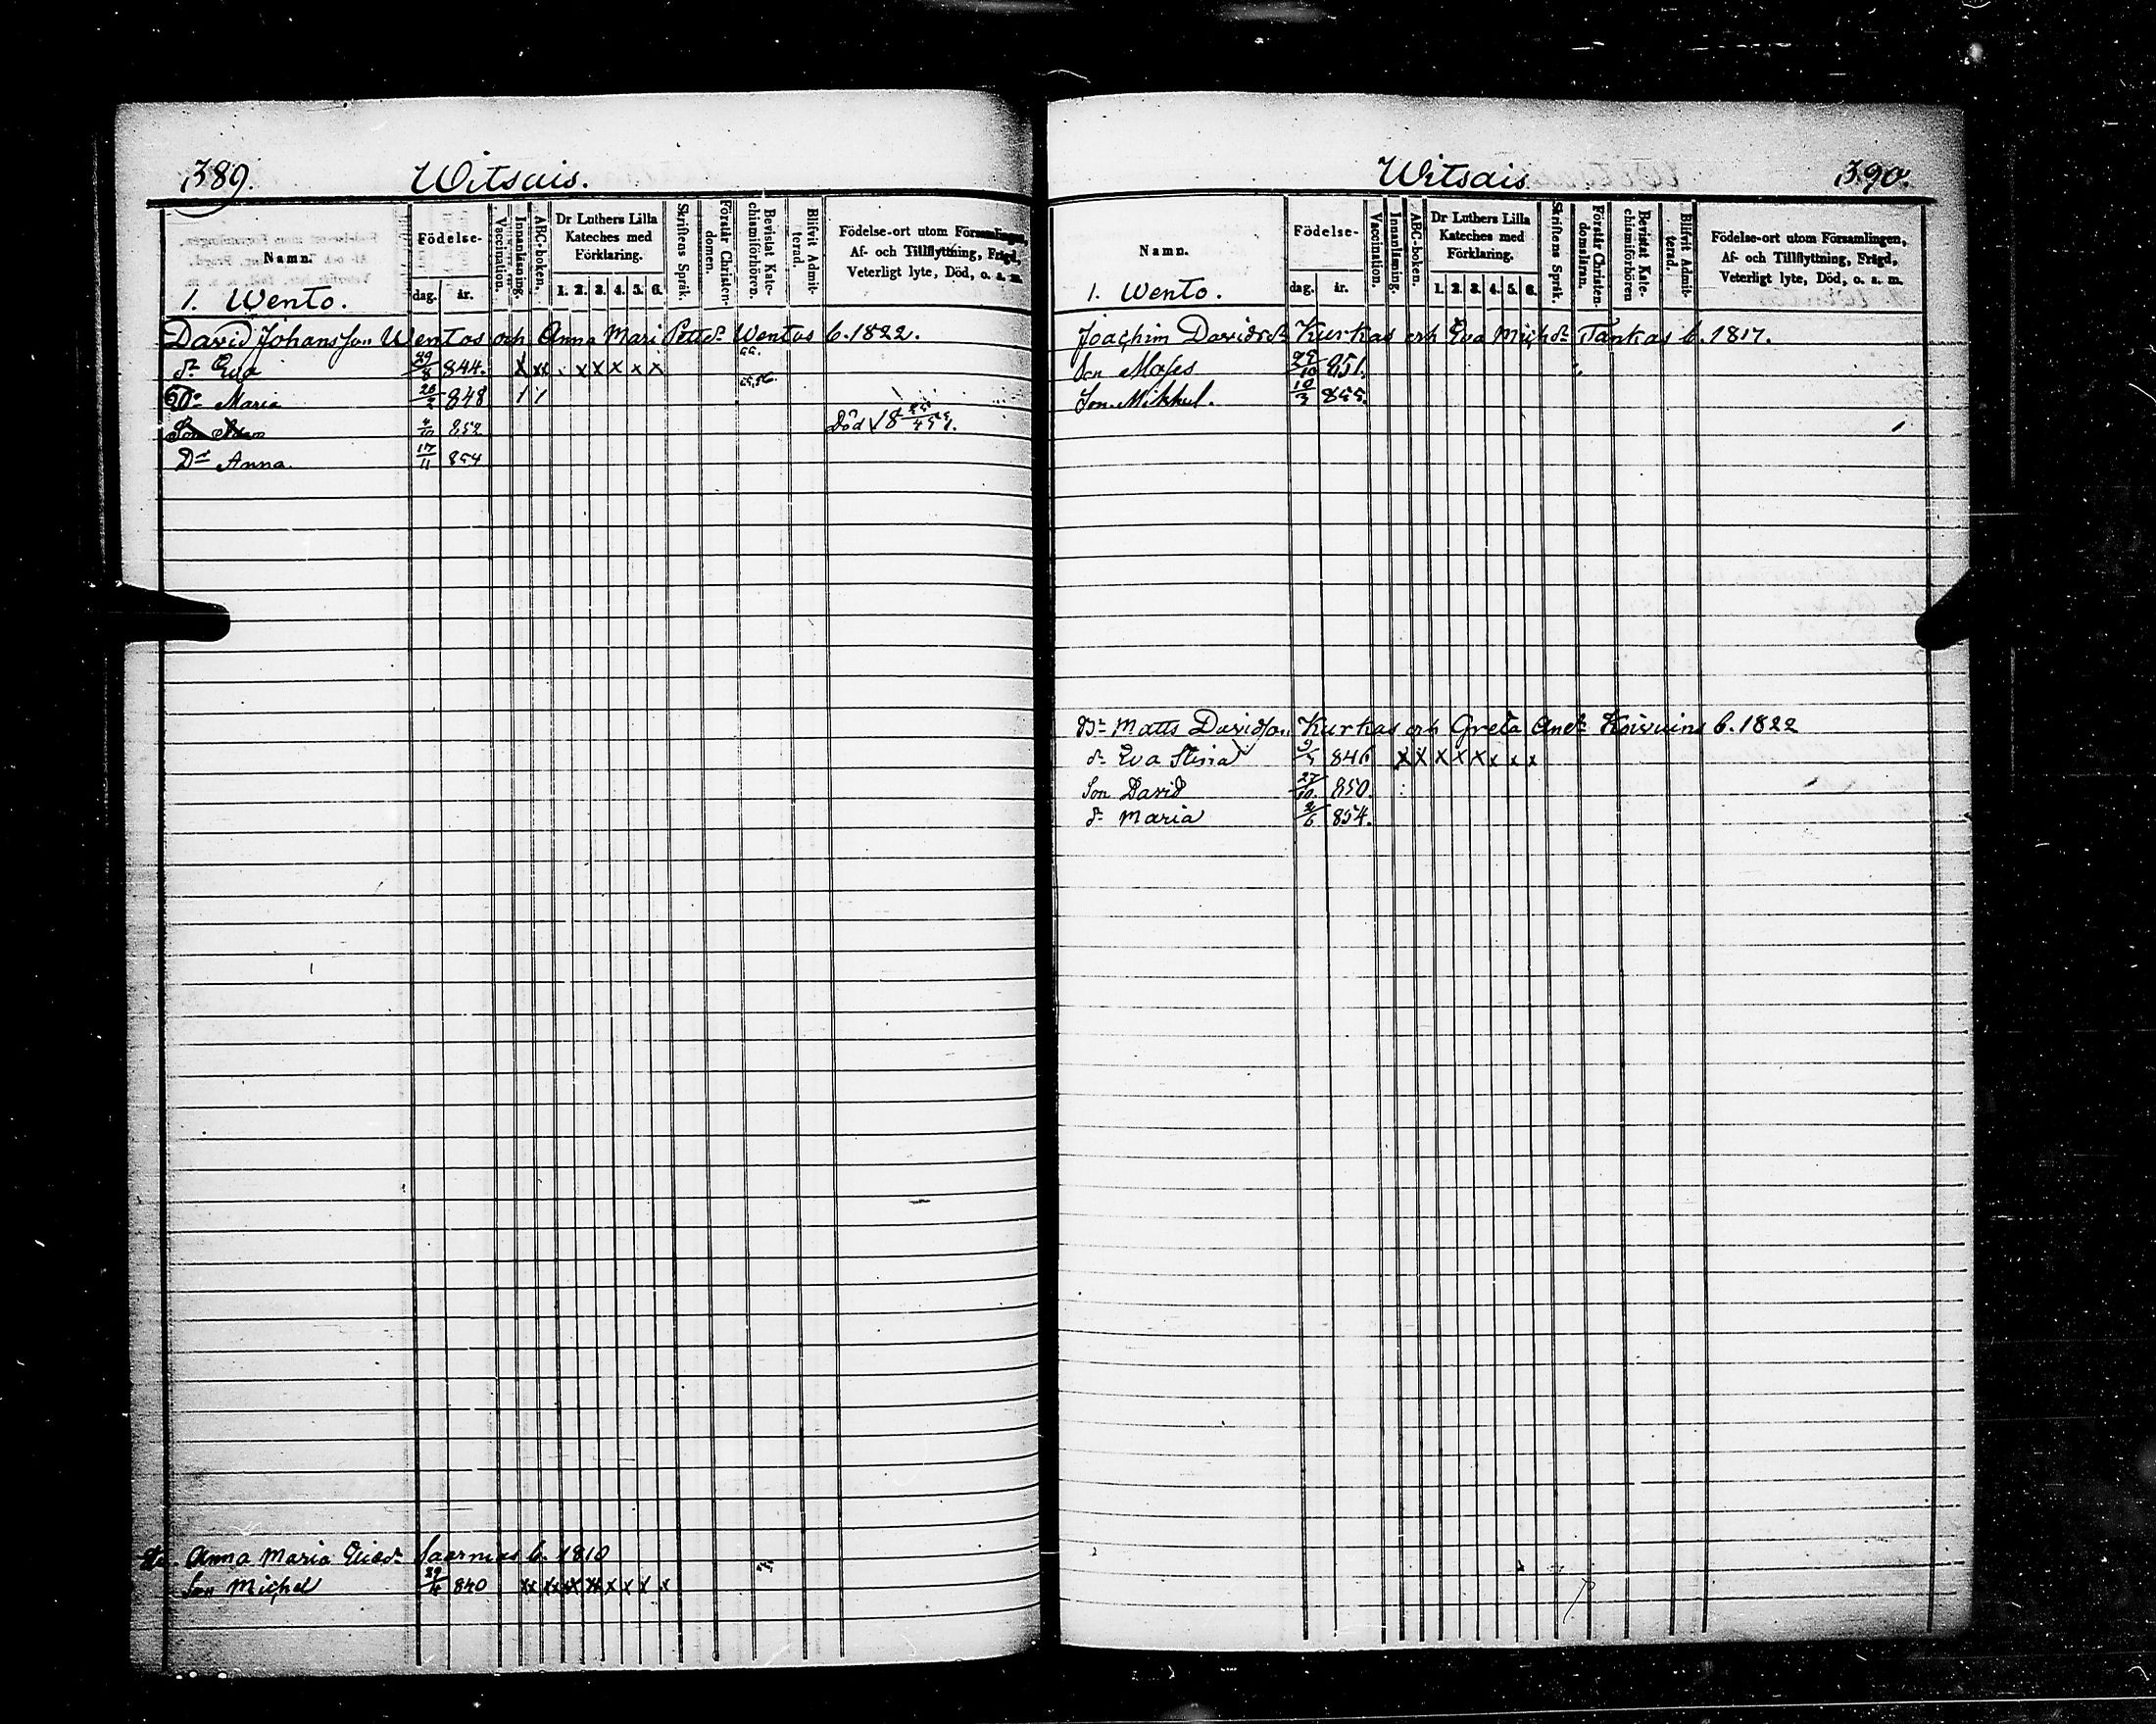 389. Witsais.
Namn.
Födelse-
dag. år.
Vaccination.
Innanläsning.
ABC-boken.
Dr Luthers Lilla
Kateches med
Förklaring.
1. 2. 3. 4. 5. 6.
Skriftens Språk.
Förstår Christen-
domen.
Bevistat Kate-
chismiförhören.
Blifvit Admit-
terad.
Födelse-ort utom Församlingen,
Af- och Tillflyttning, Frägd,
Veterligt lyte, Död, o. s. m.
1. Wento.
David Johansson Wentos och Anna Mari Pettdr Wentos b. 1822.
dr Eva 29/8 844. X xx x x x x x 55.
Dr Maria 848 / / 55,56.
Son Adam 852 Död
Dr Anna. 17/11 854
Anna Maria Eliedr Saarnias b. 1810
Son Michel 840 xx x x x x x x
Witsais 390.
Namn.
Födelse-
dag. år.
Vaccination.
Innanläsning.
ABC-boken.
Dr Luthers Lilla
Kateches med
Förklaring.
1. 2. 3. 4. 5. 6.
Skriftens Språk.
Förstår Christen-
domsläran.
Bevistat Kate-
chismiförhören
Blifvit Admit-
terad.
Födelse-ort utom Församlingen,
Af- och Tillflyttning, Frägd,
Veterligt lyte, Död, o. s. m.
1. Wento.
Joachim Davids Kurkas och Eva Michdr Tankas b. 1817.
Son Moses 851.
Son Mikkel. 10/3 855.
Br Matts Davidson Kurkas och Greta Anddr Koivuins b. 1822
dr Eva Stina 846 x x x x x x x x
Son David 27/10. 850.
dr Maria 2/6 854.